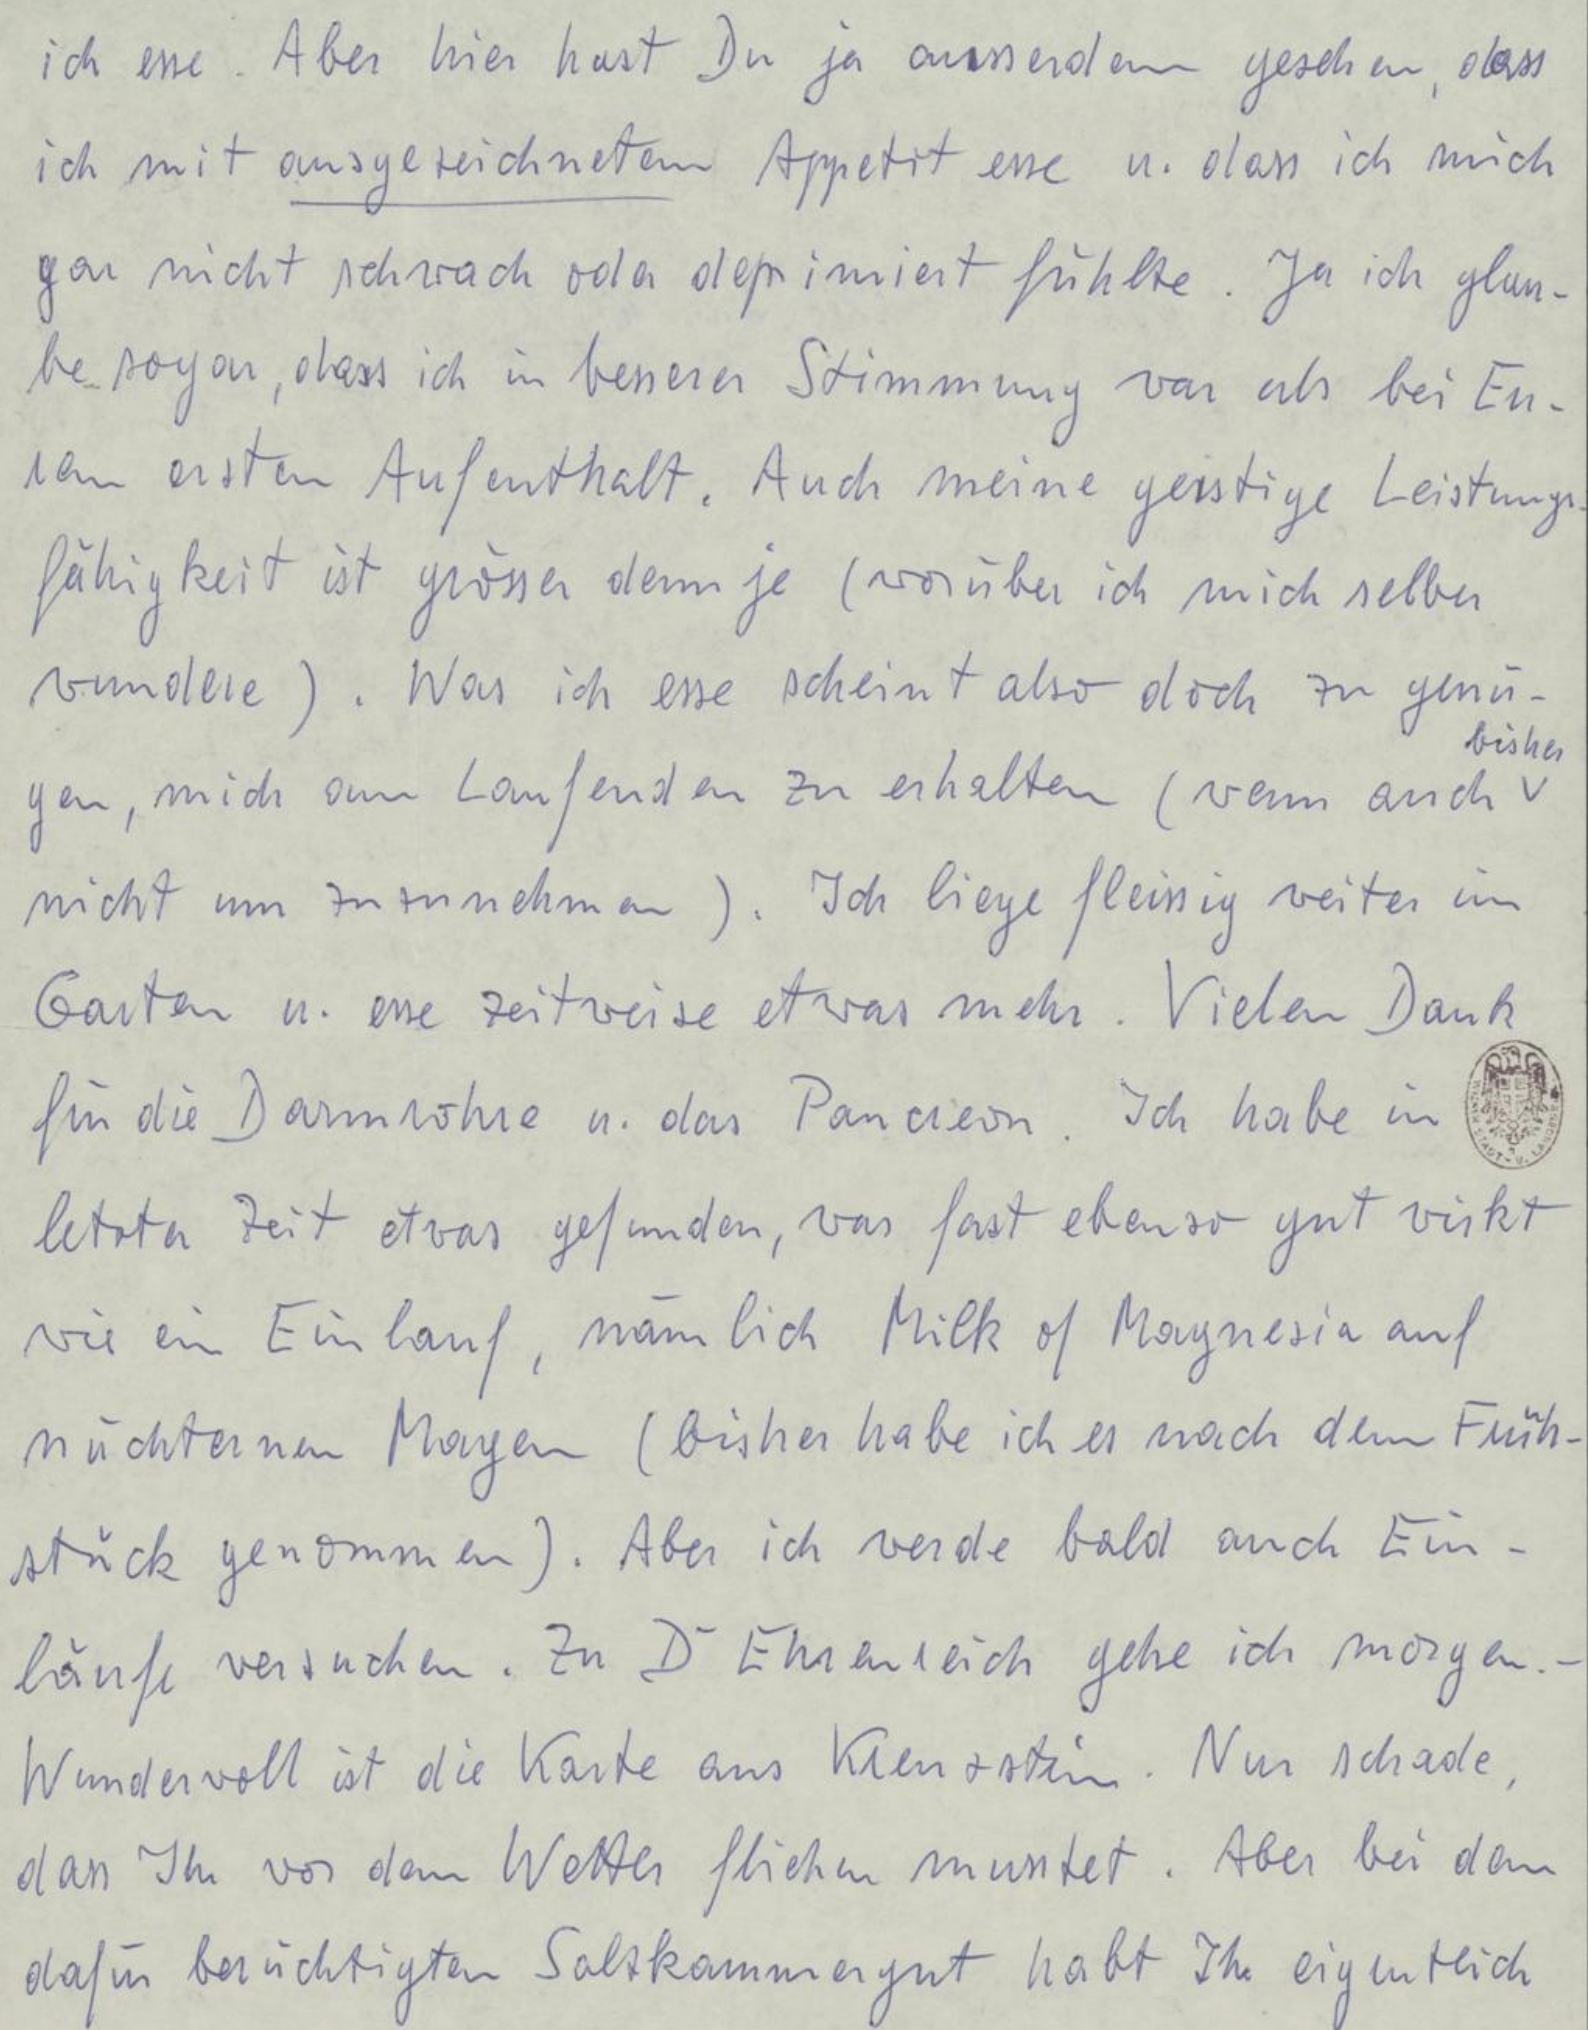 ich esse. Aber hier hast Du ja ausserdem gesehen, dass
ich mit ausgezeichnetem Appetit esse u. dass ich mich
gar nicht schwach oder deprimiert fühlte. Ja ich glau-
be sogar, dass ich in besserer Stimmung war als bei Eu-
rem ersten Aufenthalt. Auch meine geistige Leistungs-
fähigkeit ist grösser denn je (worüber ich mich selber
wundere). Was ich esse scheint also doch zu genü-
bisher
gen, mich am Laufenden zu erhalten (wenn auch v
nicht um zuzunehmen). Ich liege fleissig weiter im
Garten u. esse zeitweise etwas mehr. Vielen Dank
für die Darmrohre u. das Pancreon. Ich habe in
letzter Zeit etwas gefunden, was fast ebenso gut wirkt
wie ein Einlauf, nämlich Milk of Magnesia auf
nüchternen Magen (bisher habe ich es nach dem Früh-
stück genommen). Aber ich werde bald auch Ein-
läufe versuchen. Zu Dr Ehrenreich gehe ich morgen.-
Wundervoll ist die Karte aus. Nur schade,
dass Ihr vor dem Wetter fliehen musstet. Aber bei dem
dafür berüchtigten Salzkammergut habt Ihr eigentlich